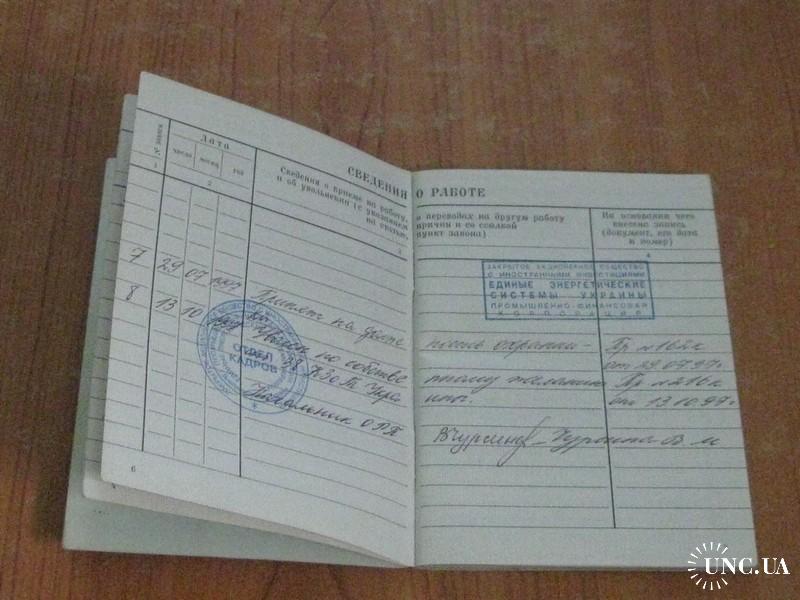 СВЕДЕНИЯ О РАБОТЕ
№ записи
Дата
число месяц год
Сведения о приеме на работу, о переводах на другую работу
и об увольнении (с указанием причин и со ссылкой
на статью, пункт закона)
На основании чего
внесена запись
(документ, его дата
и номер)
1 2 3 4
ЗАКРЫТОЕ АКЦИОНЕРНОЕ ОБЩЕСТВО
С ИНОСТРАННЫМИ ИНВЕСТИЦИЯМИ
ЕДИНЫЕ ЭНЕРГЕТИЧЕСКИЕ
СИСТЕМЫ УКРАИНЫ
ПРОМЫШЛЕННО-ФИНАНСОВАЯ
КОРПОРАЦИЯ
7 29 07 1997 Принят на долж
ность охранни- Пр №165к
ка от 29.07.97г.
8 13 10 1997 Уволен по собстве
нному желанию Пр №216к
ст. 38 КЗоТ Укра
ины. от 13.10.97г.
Начальник ОРП
ОТДЕЛ
КАДРОВ
6
UNC.UA